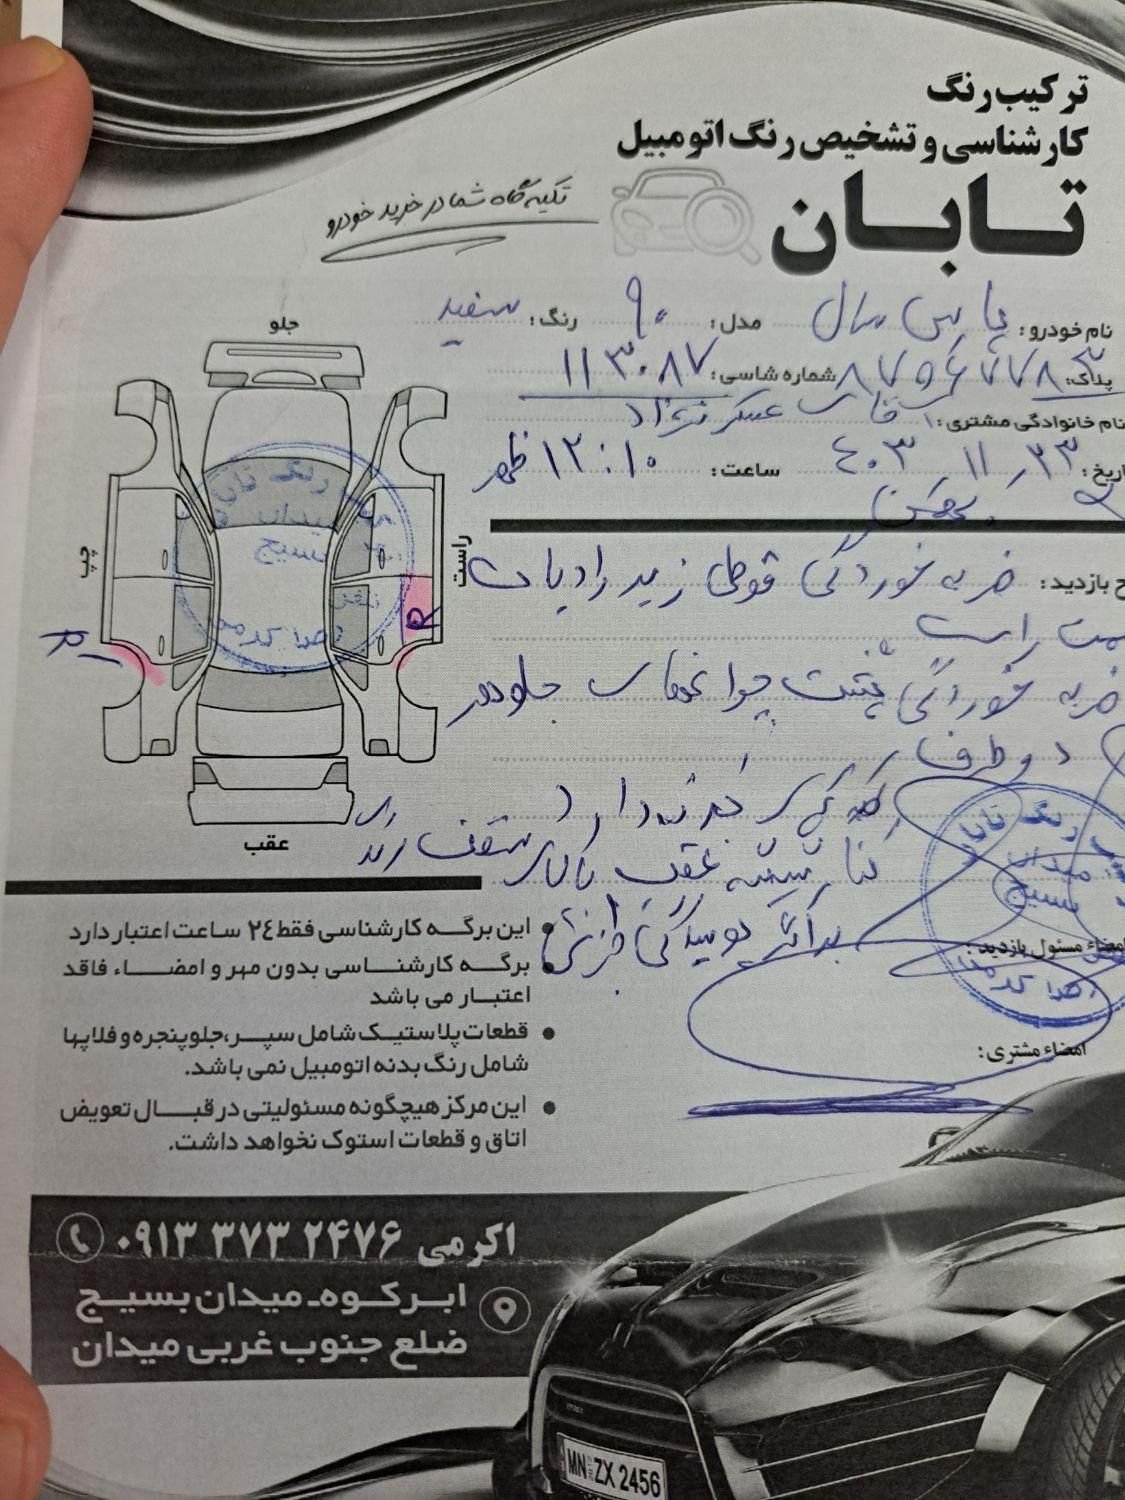 ترکیب رنگ
کارشناسی و تشخیص رنگ اتومبیل
تابان
تکیه گاه شما در خرید خودرو
نام خودرو: پارس سال مدل: ۹۰ رنگ: سفید
پلاک: شماره شاسی: ۱۱۳۰۸۷
نام خانوادگی مشتری:
تاریخ: ۴۰۳/۱۱/۲۳ ساعت: ۱۲:۱۰ ظهر
بهمن
شرح بازدید: ضربه خوردگی قوطی زیر رادیات
سمت راست
ضربه خوردگی پشت چراغهای جلو هر
دو طرف
دارد
شیشه عقب بالای سقف
جلو
چپ
راست
عقب
این برگه کارشناسی فقط ۲۴ ساعت اعتبار دارد
برگه کارشناسی بدون مهر و امضاء فاقد
اعتبار می باشد
قطعات پلاستیک شامل سپر، جلوپنجره و فلاپها
شامل رنگ بدنه اتومبیل نمی باشد.
این مرکز هیچگونه مسئولیتی در قبال تعویض
اتاق و قطعات استوک نخواهد داشت.
امضاء مسئول بازدید:
امضاء مشتری:
اکرمی ۰۹۱۳ ۳۷۳ ۲۴۷۶
ابرکوه ـ میدان بسیج
ضلع جنوب غربی میدان
MN ZX 2456